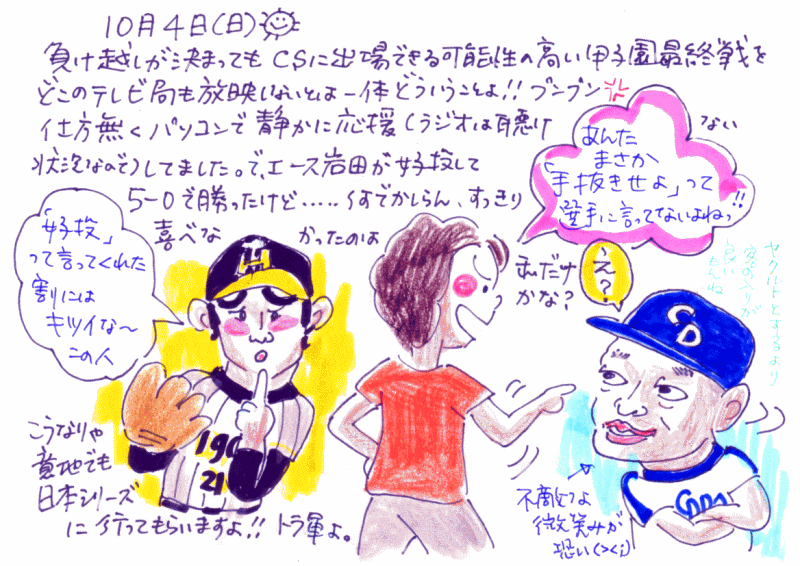 10月4日(日)
負け越しが決まってもCSに出場できる可能性の高い甲子園最終戦を
どこのテレビ局も放映しないとは一体どういうことよ!!プンプン
仕方無くパソコンで静かに応援(ラジオは聴けない
状況なので)してました。で、エース岩田が好投して
5-0で勝ったけど……何でかしらん、すっきり
喜べなかったのは
私だけ
かな?
あんた
まさか
「手抜きせよ」って
選手に言ってないよねっ!!
「好投」
って言ってくれた
割には
キツイな〜
この人
え?
ヤクルトとするより
客の入りが
良い
もんね
H
190
21
CD
こうなりゃ
意地でも
日本シリーズ
に行ってもらいますよ!!トラ軍よ。
不敵な
微笑みが
恐い(><;)